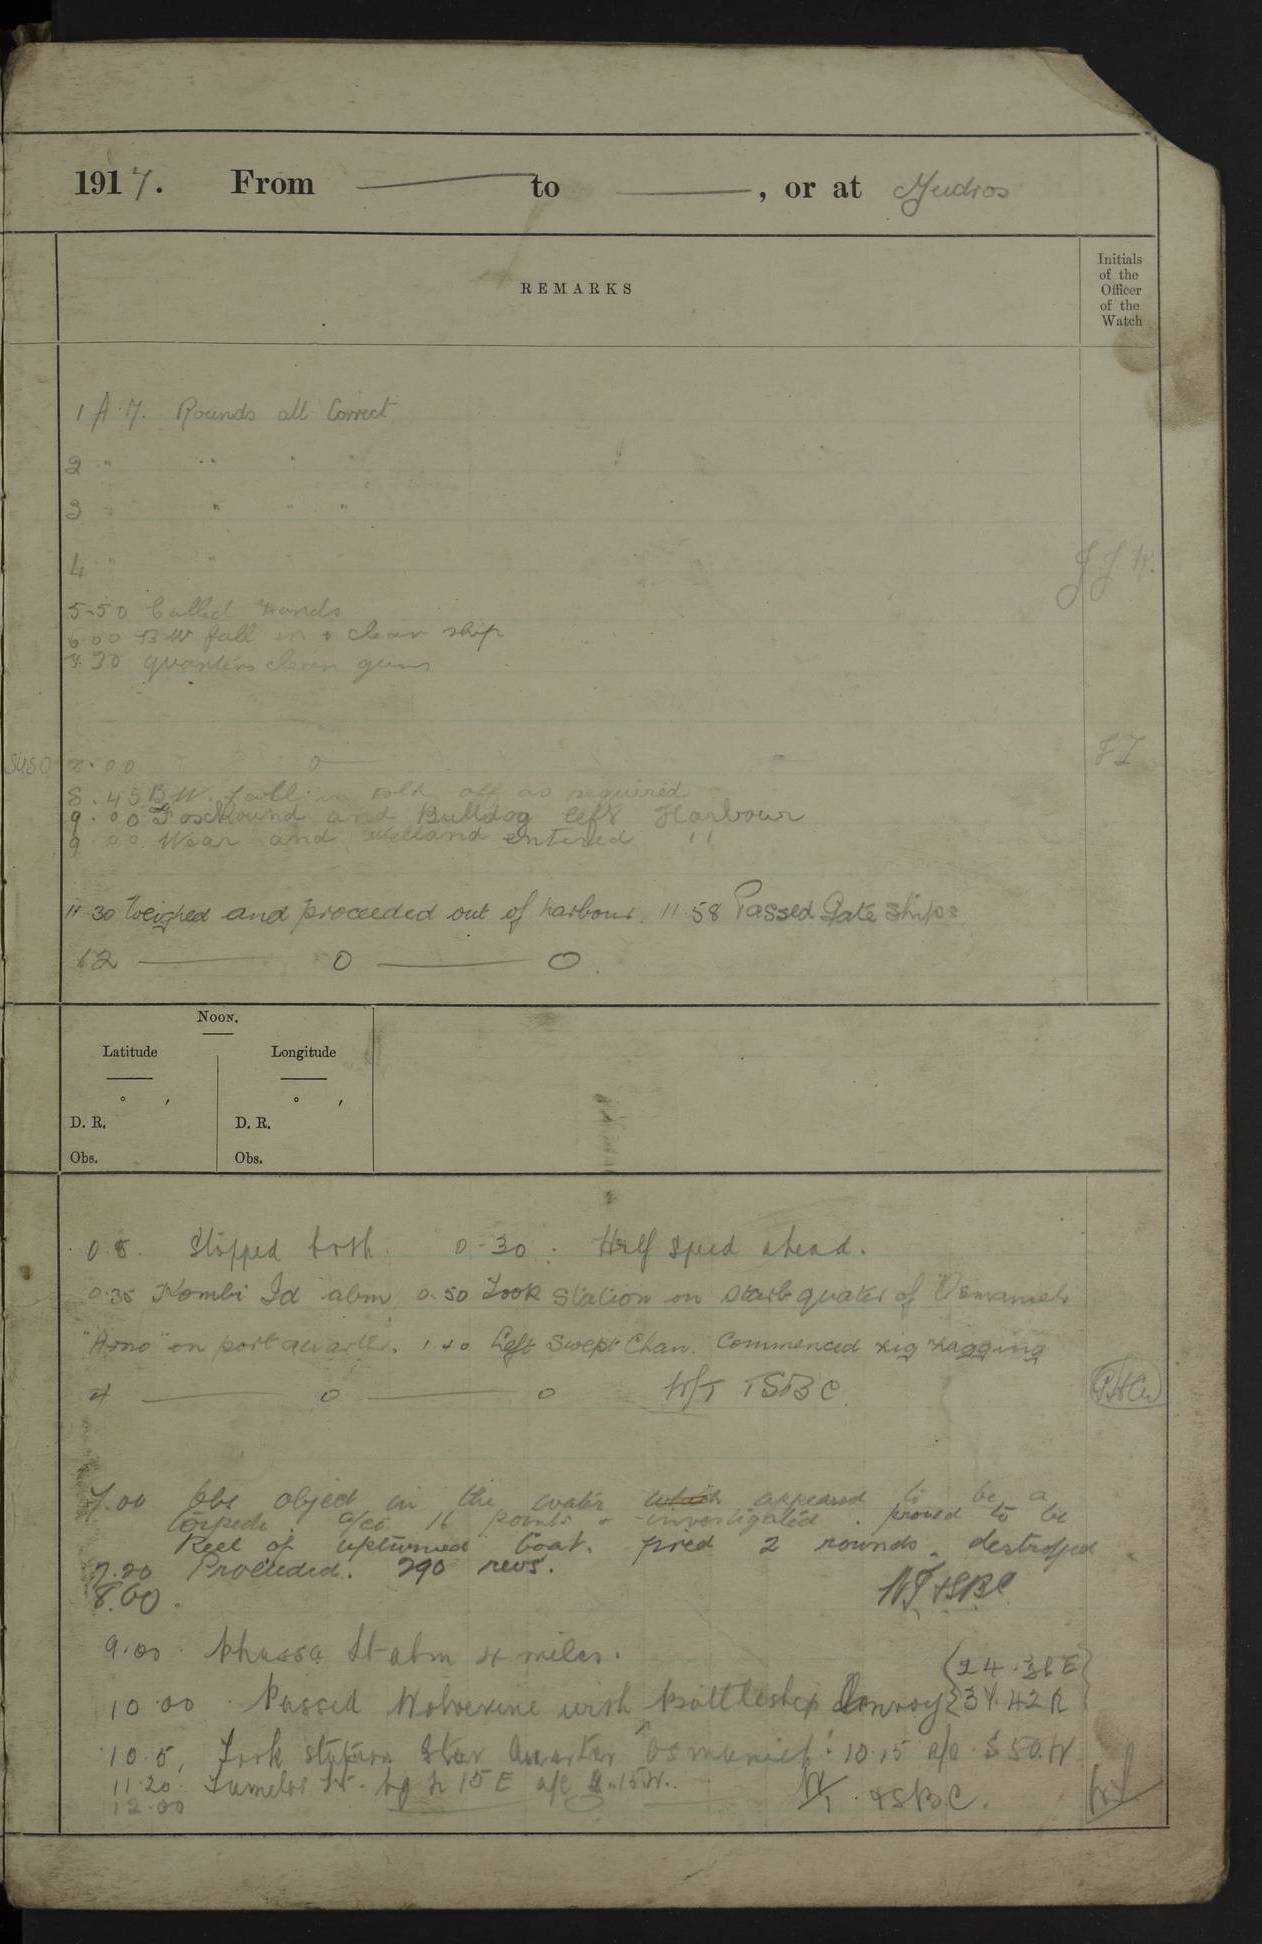 1917. From — to —, or at Mudros
REMARKS
Initials
of the
Officer
of the
Watch
1 A M. Rounds all Correct
2 " " " "
3 " " " "
4 " "
J J K.
5-50 Called Hands
6 00 BW fall in & clean ship
7.30 quarters clean guns
8.00 — 0 —
8.45 BW. fall in told off as required
9.00 Foxhound and Bulldog left Harbour
9.00 Wear and Welland entered "
11 30 Weighed and proceeded out of harbour. 11 58 Passed Gate Ships
12 — 0 — 0.
Noon.
Latitude Longitude
° ′ ° ′
D. R. D. R.
Obs. Obs.
0.8. Stopped both. 0-30. Half speed ahead.
0.35 Kombi Id abm. 0.50 Took Station on Starb quater of "Osmanieh
"Arno" on port quarter. 1 40 Left Swept Chan. Commenced zig zagging
4 — 0 — 0 W/T TSBC.
7.00 Obs object in the water which appeared to be a
torpedo. a/co 16 points & investigated. proved to be
Keel of upturned boat. fired 2 rounds. destroyed.
7.20 Proceeded. 290 revs.
8.00. W/T TSBC
9.00. St abm 4 miles.
10.00. Passed Wolverine with Battleship Convoy
10.5, Took station Star Quarter "Osmanieh". 10.15 a/c S 50.W
11.20. Lt. bg N 15 E a/c S.15W.
12.00 W/T. TSBC.